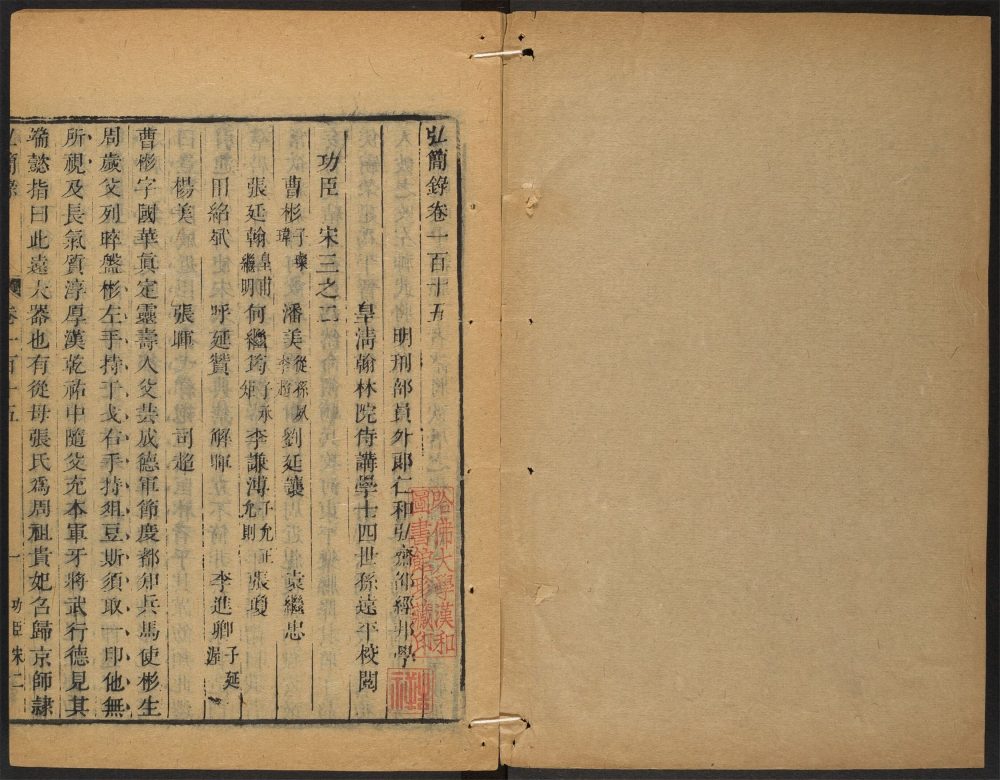 弘簡錄卷一百十五
明刑部員外郎仁和弘齋邵經邦學
皇淸翰林院侍講學士四世孫遠平校閱
功臣 宋三之二
曹彬子璨 瑋 潘美從孫夙 李超 劉廷讓 袁繼忠
張延翰皇甫繼明 何繼筠子承矩 李謙溥子允正 允則 張瓊
田紹斌 呼延贊 解暉 李進卿子延渥
楊美 張暉 司超
曹彬字國華眞定靈壽人父芸成德軍節度都知兵馬使彬生
周歲父列晬盤彬左手持干戈右手持俎豆斯須取一印他無
所視及長氣質淳厚漢乾祐中隨父充本軍牙將武行德見其
端慤指曰此遠大器也有從母張氏爲周祖貴妃名歸京師隷
弘簡錄 卷一百十五 一 功臣 宋二
哈佛大學漢和
圖書館珍藏印